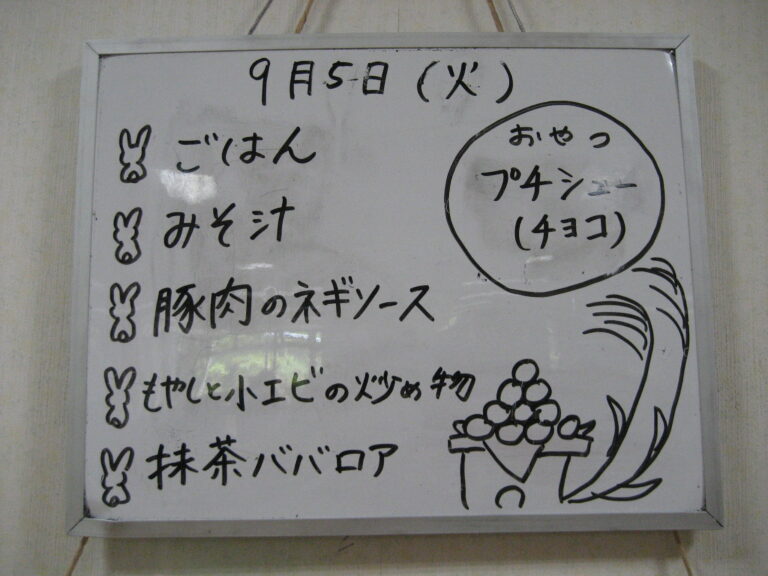 9月5日(火)
ごはん
みそ汁
豚肉のネギソース
もやしと小エビの炒め物
抹茶ババロア
おやつ
プチシュー
(チョコ)